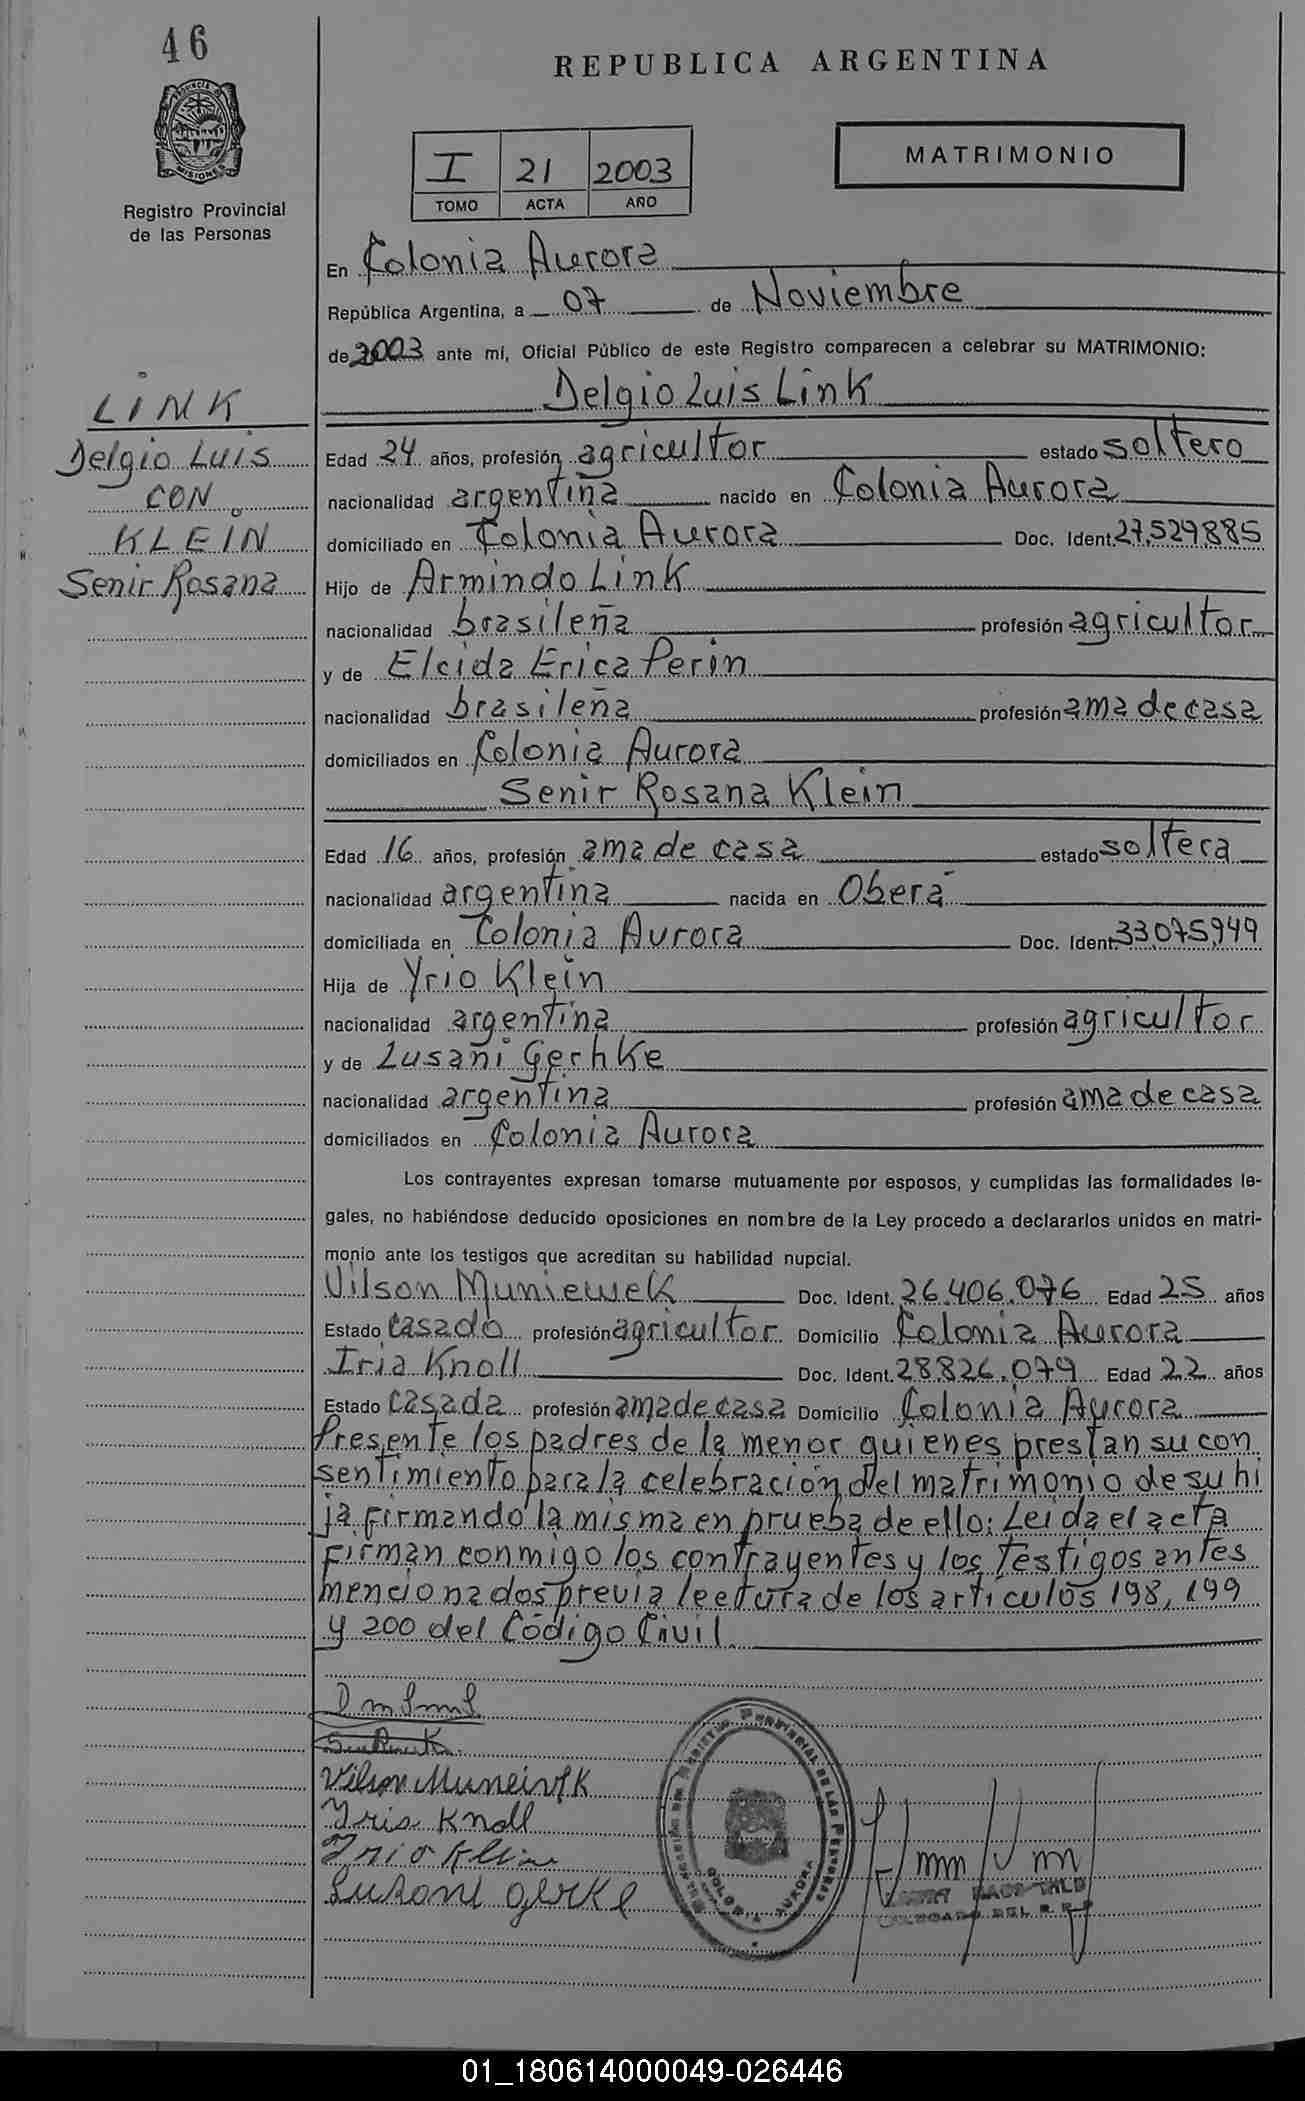 46
REPUBLICA ARGENTINA
PROVINCIA DE MISIONES
Registro Provincial
de las Personas
I 21 2003
TOMO ACTA AÑO
MATRIMONIO
En Colonia Aurora
República Argentina, a 07 de Noviembre
de 2003 ante mí, Oficial Público de este Registro comparecen a celebrar su MATRIMONIO:
LINK
Delgio Luis
CON
KLEIN
Senir Rosana
Delgio Luis Link
Edad 24 años, profesión agricultor estado soltero
nacionalidad argentina nacido en Colonia Aurora
domiciliado en Colonia Aurora Doc. Ident. 27.529.885
Hijo de Armindo Link
nacionalidad brasileña profesión agricultor
y de Elcida Erica Perin
nacionalidad brasileña profesión ama de casa
domiciliados en Colonia Aurora
Senir Rosana Klein
Edad 16 años, profesión ama de casa estado soltera
nacionalidad argentina nacida en Oberá
domiciliada en Colonia Aurora Doc. Ident. 33.075.949
Hija de Yrio Klein
nacionalidad argentina profesión agricultor
y de Lusani Gerhke
nacionalidad argentina profesión ama de casa
domiciliados en Colonia Aurora
Los contrayentes expresan tomarse mutuamente por esposos, y cumplidas las formalidades le-
gales, no habiéndose deducido oposiciones en nombre de la Ley procedo a declararlos unidos en matri-
monio ante los testigos que acreditan su habilidad nupcial.
Vilson Muniewek Doc. Ident. 26.406.076 Edad 25 años
Estado casado profesión agricultor Domicilio Colonia Aurora
Iria Knoll Doc. Ident. 28.826.079 Edad 22 años
Estado casada profesión ama de casa Domicilio Colonia Aurora
Presente los padres de la menor quienes prestan su con
sentimiento para la celebración del matrimonio de su hi
ja firmando la misma en prueba de ello: Leida el acta
firman conmigo los contrayentes y los testigos antes
mencionados previa lectura de los artículos 198, 199
y 200 del Código Civil
Vilson
Iria Knoll
Irio Klein
Lusani Gerke
REGISTRO PROVINCIAL DE LAS PERSONAS
COLONIA AURORA
DELEGADO DEL R.P.P
01_180614000049-026446